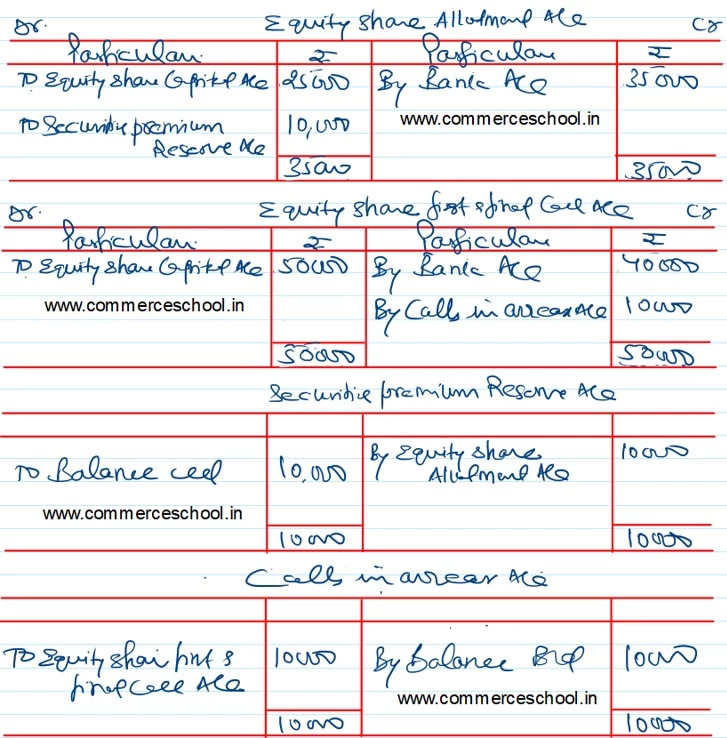 Dr. Equity Share Allotment A/c Cr
Particulars ₹ Particulars ₹
To Equity Share Capital A/c 25000 By Bank A/c 35000
To Securities premium 10,000 www.commerceschool.in
Reserve A/c
35000 35000
Dr. Equity Share first & final Call A/c Cr
Particulars ₹ Particulars ₹
To Equity Share Capital A/c 50000 By Bank A/c 40000
www.commerceschool.in By Calls in arrear A/c 10000
50000 50000
Securities premium Reserve A/c
By Equity Share 10000
To Balance c/d 10,000 Allotment A/c
www.commerceschool.in
10000 10000
Calls in arrear A/c
To Equity Share first & 10000 By Balance B/d 10000
final Call A/c www.commerceschool.in
10000 10000